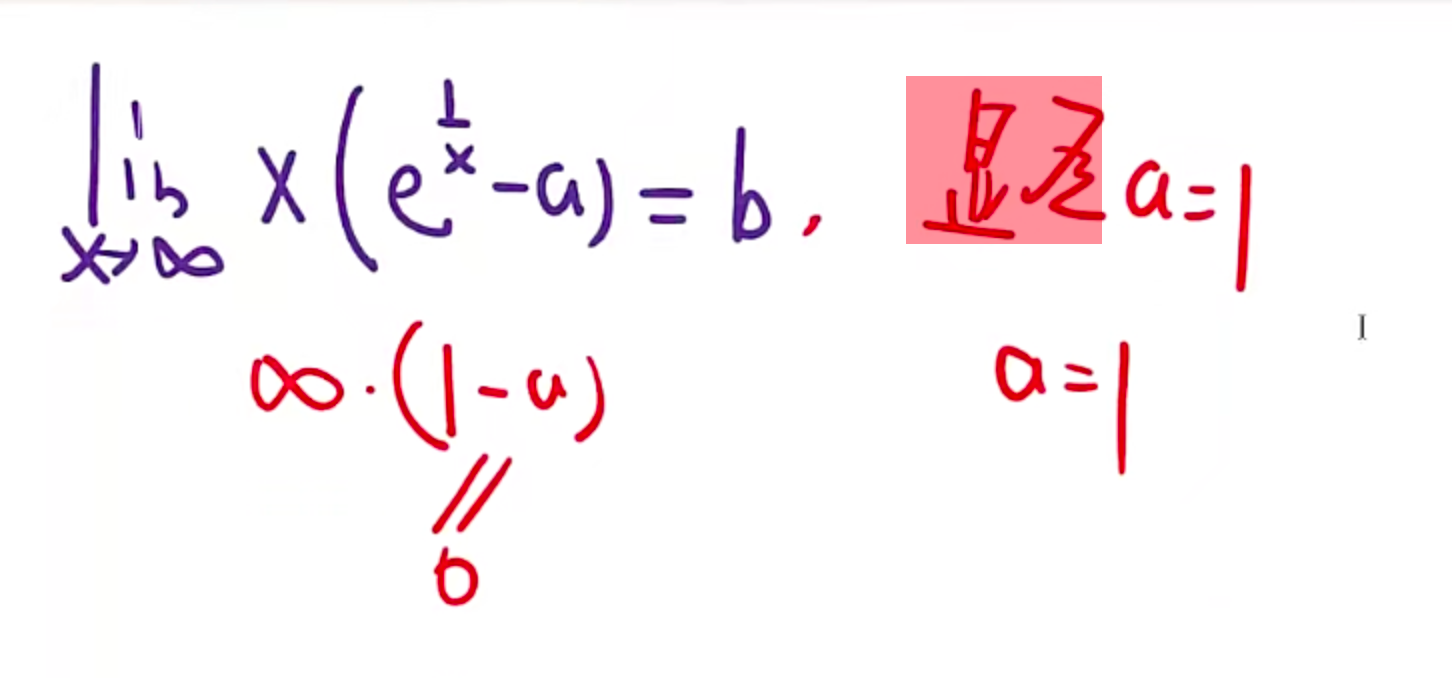 lim x→∞ x(e^{1/x} - a) = b, 显然 a=1
∞·(1-a) a=1
//
0